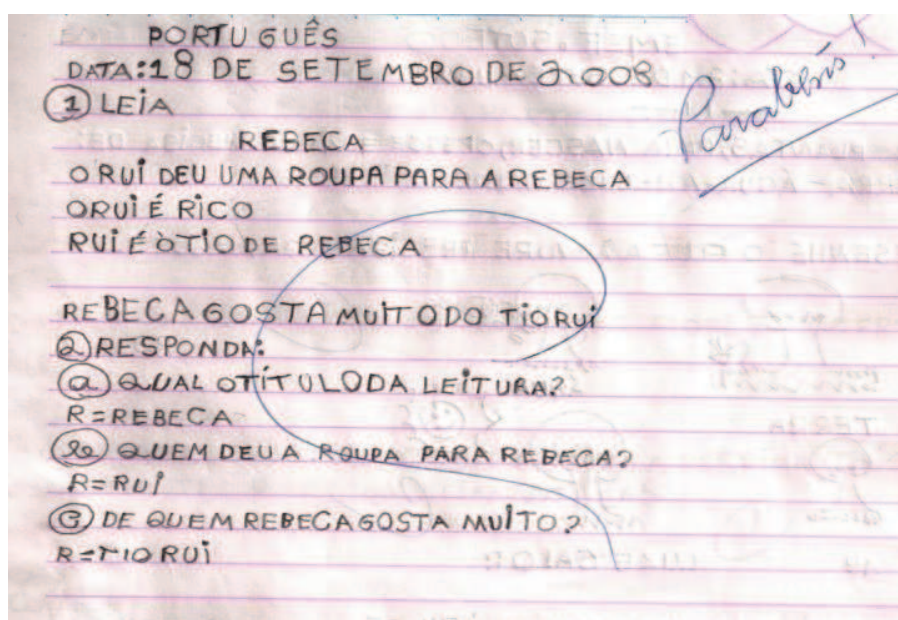 PORTUGUÊS
DATA: 18 DE SETEMBRO DE 2008
Parabéns!
1 LEIA
REBECA
O RUI DEU UMA ROUPA PARA A REBECA
O RUI É RICO
RUI É O TIO DE REBECA
REBECA GOSTA MUITO DO TIO RUI
2 RESPONDA:
a QUAL O TÍTULO DA LEITURA?
R = REBECA
b QUEM DEU A ROUPA PARA REBECA?
R = RUI
C DE QUEM REBECA GOSTA MUITO?
R = TIO RUI